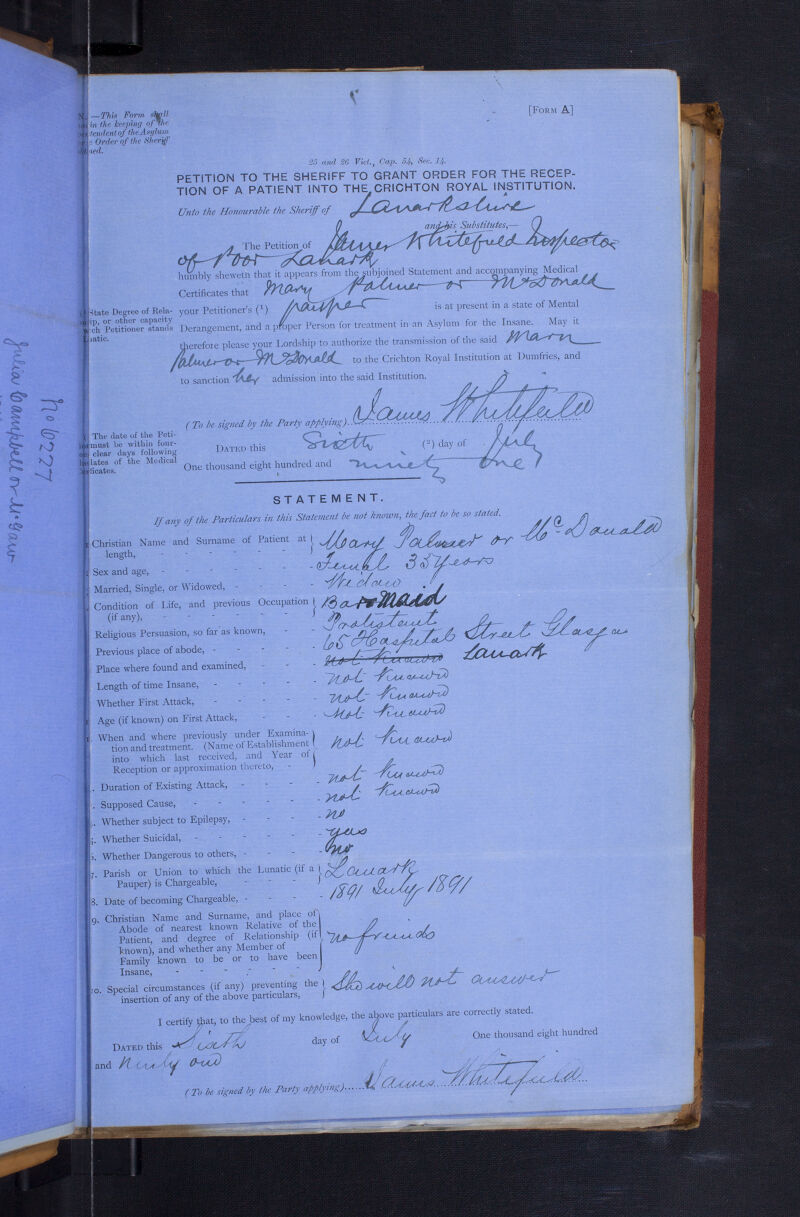 [FORM A]
N.—This Form shall
in the keeping of the
tendent of the Asylum
Order of the Sheriff
25 and 26 Vict., Cap. 54, Sec. 14.
PETITION TO THE SHERIFF TO GRANT ORDER FOR THE RECEP-
TION OF A PATIENT INTO THE CRICHTON ROYAL INSTITUTION.
Unto the Honourable the Sheriff of Lanarkshire
and his Substitutes,—
The Petition of James Whitefield Inspector
of Poor Lanark
humbly sheweth that it appears from the subjoined Statement and accompanying Medical
Certificates that Mary Palmer or McDonald
State Degree of Rela-
ip, or other capacity
ich Petitioner stands
your Petitioner's (1) pauper is at present in a state of Mental
Derangement, and a proper Person for treatment in an Asylum for the Insane. May it
therefore please your Lordship to authorize the transmission of the said Mary
Palmer or McDonald to the Crichton Royal Institution at Dumfries, and
to sanction her admission into the said Institution.
(To be signed by the Party applying) James Whitefield
The date of the Peti-
must be within four-
clear days following
dates of the Medical
DATED this Sixth (2) day of July
One thousand eight hundred and ninety one
No 6227
Julia Campbell or McGaw
STATEMENT.
If any of the Particulars in this Statement be not known, the fact to be so stated.
Christian Name and Surname of Patient at
length, - Mary Palmer or McDonald
Sex and age, - Femal 35 years
Married, Single, or Widowed, - Widow
Condition of Life, and previous Occupation
(if any), - Bar Maid
Religious Persuasion, so far as known, - Protistant
Previous place of abode, - 65 Hospital Street Glasgo
Place where found and examined, - not Knowd Lanark
Length of time Insane, - not Knowd
Whether First Attack, - not Knowd
Age (if known) on First Attack, - Not Knowd
When and where previously under Examina-
tion and treatment. (Name of Establishment
into which last received, and Year of
Reception or approximation thereto, - not Knowd
Duration of Existing Attack, - not Knowd
Supposed Cause, - not Knowd
Whether subject to Epilepsy, - no
Whether Suicidal, - yes
Whether Dangerous to others, - no
7. Parish or Union to which the Lunatic (if a
Pauper) is Chargeable, - Lanark
8. Date of becoming Chargeable, - 1891 July 1891
9. Christian Name and Surname, and place of
Abode of nearest known Relative of the
Patient, and degree of Relationship (if
known), and whether any Member of
Family known to be or to have been
Insane, - no freinds
20. Special circumstances (if any) preventing the
insertion of any of the above particulars, She will not answer
I certify that, to the best of my knowledge, the above particulars are correctly stated.
DATED this Sixth day of July One thousand eight hundred
and Ninty one
(To be signed by the Party applying) James Whitefield